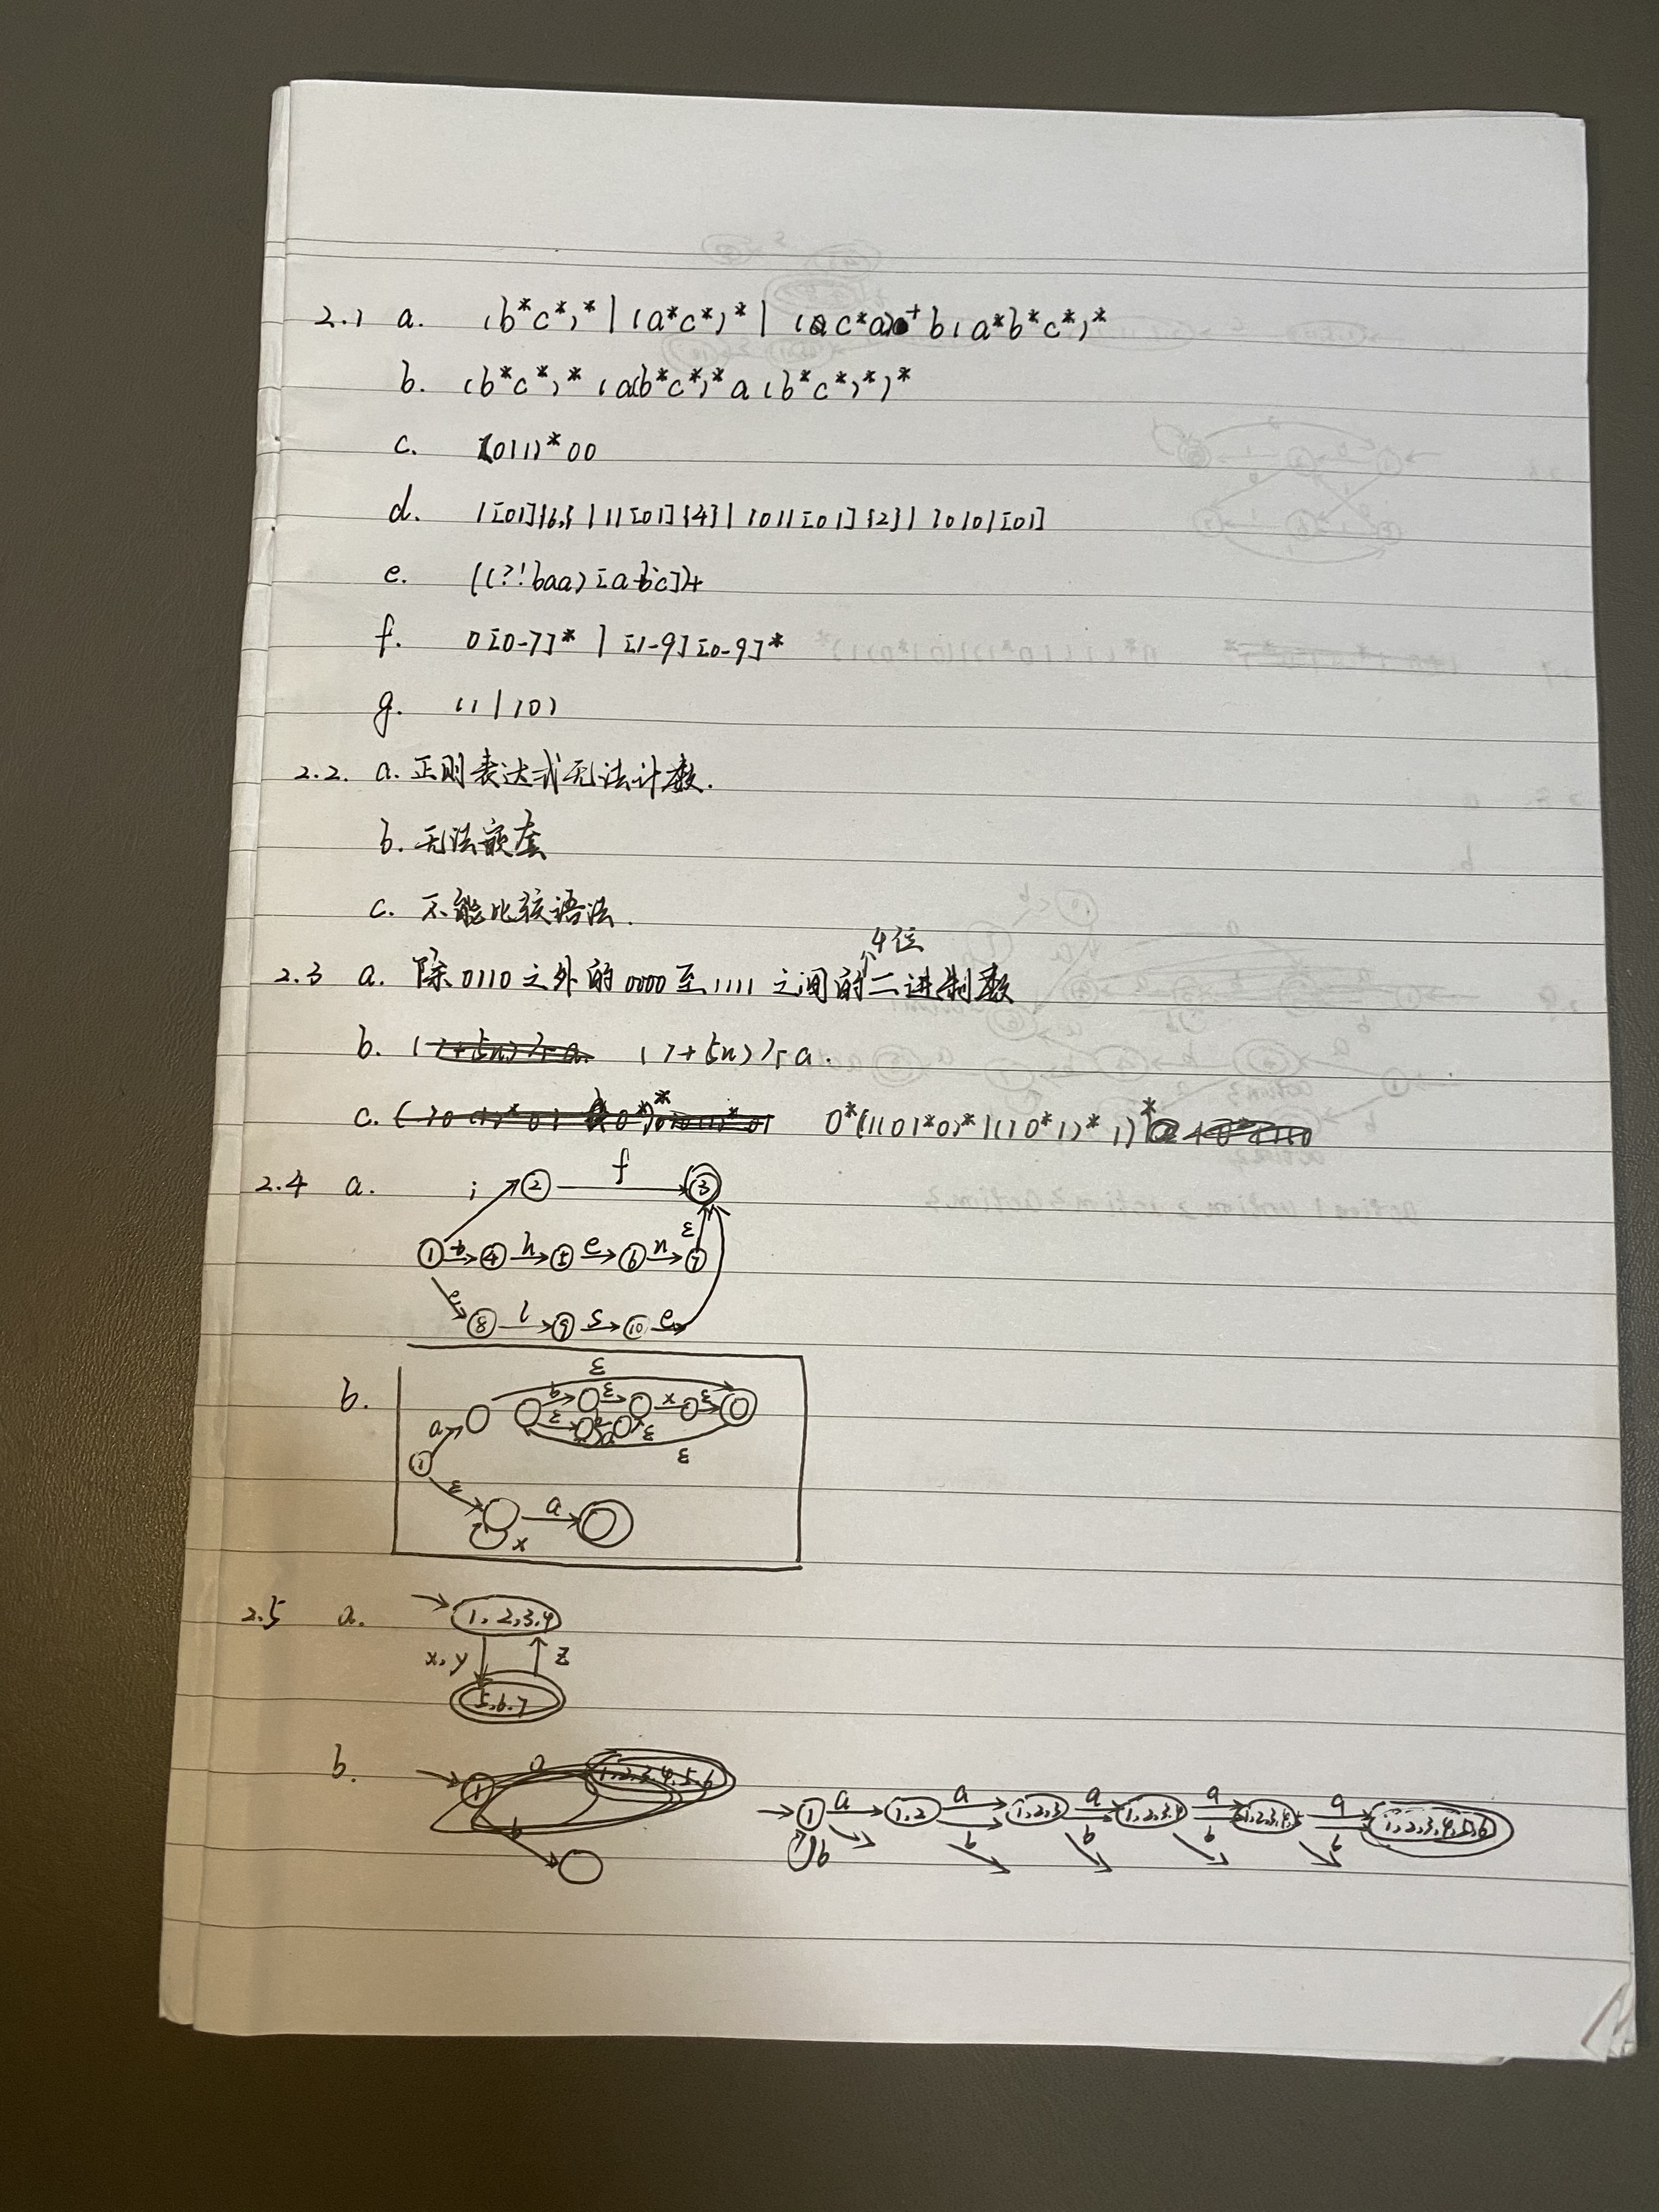 2.1 a. (b*c*)* | (a*c*)* | (ac*a)+b(a*b*c*)*
b. (b*c*)* (a(b*c*)*a(b*c*)*)*
c. (0|1)*00
d. 1[01]{6,} | 11[01]{4} | 1011[01]{2} | 10101[01]
e. ((?!baa)[abc])+
f. 0[0-7]* | [1-9][0-9]*
g. (1|10)
2.2. a. 正则表达式无法计数.
b. 无法嵌套
c. 不能比较语法.
4位
2.3 a. 除0110之外的0000至1111之间的二进制数
b. (7+5n)个a.
c. 0*(1(01*0)*|(10*1)*1)*
2.4 a. i ② f ③
① t ④ h ⑤ e ⑥ n ⑦ ε
e ⑧ l ⑨ s ⑩ e
b. ε
a b ε x ε
ε ε
① ε
ε a
x
2.5 a. 1,2,3,4
x,y z
5,6,7
b. a 1,2,3,4,5,6
① a 1,2 a 1,2,3 a 1,2,3,4 a 1,2,3,4,5 a 1,2,3,4,5,6
b b b b b b